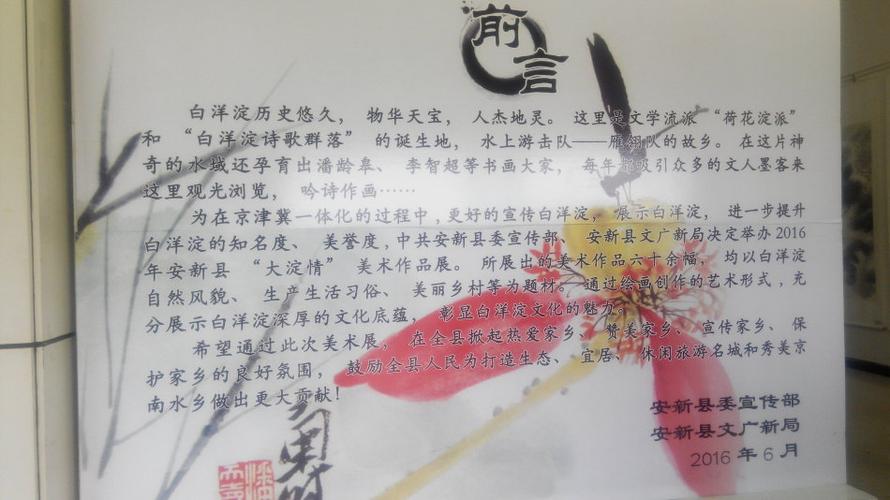 前言
白洋淀历史悠久， 物华天宝， 人杰地灵。 这里是文学流派 “荷花淀派”
和 “白洋淀诗歌群落” 的诞生地， 水上游击队——雁翎队的故乡。 在这片神
奇的水域还孕育出潘龄皋、 李智超等书画大家， 每年都吸引众多的文人墨客来
这里观光浏览， 吟诗作画……
为在京津冀一体化的过程中，更好的宣传白洋淀， 展示白洋淀， 进一步提升
白洋淀的知名度、 美誉度，中共安新县委宣传部、 安新县文广新局决定举办2016
年安新县 “大淀情” 美术作品展。 所展出的美术作品六十余幅， 均以白洋淀
自然风貌、 生产生活习俗、 美丽乡村等为题材。 通过绘画创作的艺术形式，充
分展示白洋淀深厚的文化底蕴， 彰显白洋淀文化的魅力。
希望通过此次美术展， 在全县掀起热爱家乡、 赞美家乡、 宣传家乡、 保
护家乡的良好氛围， 鼓励全县人民为打造生态、 宜居、 休闲旅游名城和秀美京
南水乡做出更大贡献！
安新县委宣传部
安新县文广新局
2016 年 6 月